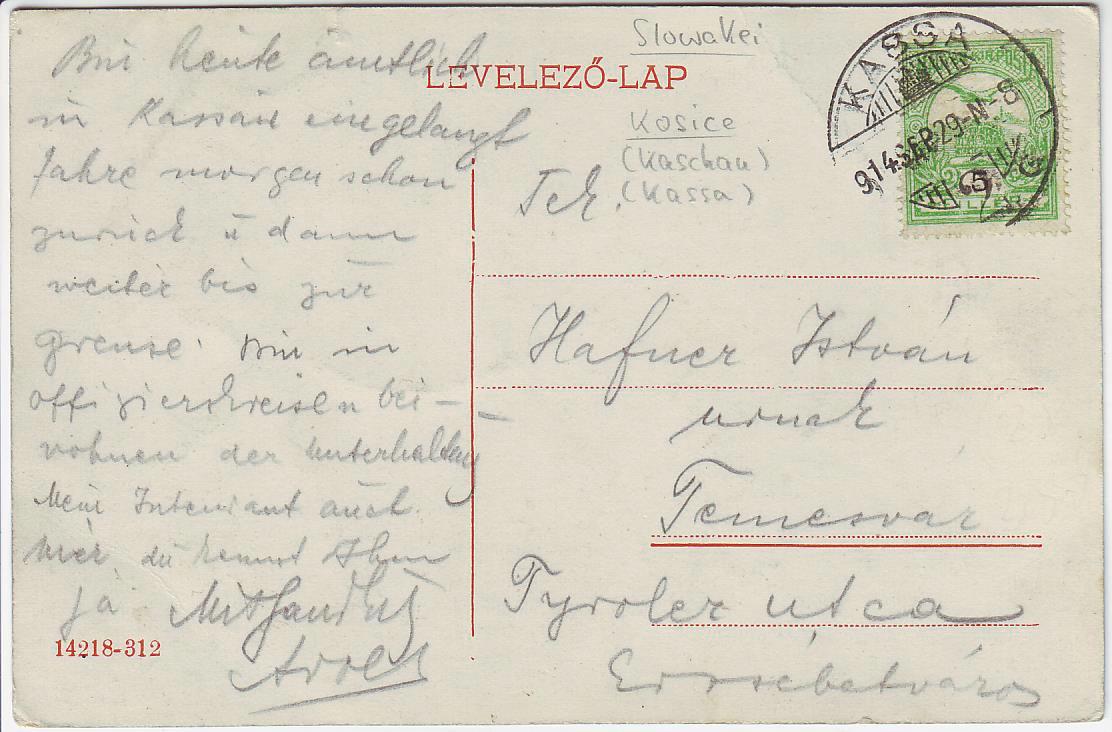 Bin heute ämtlich
in Kassau eingelangt
fahre morgen schon
zurück ü dann
weiter bis zur
Grenze. Bin in
Offizierskreisen bei-
wohnen der Unterhaltung
Mein Intendant auch
hier, du kennst Ihm
ja Mit Handkuß
14218-312
LEVELEZŐ-LAP
Slowakei
Kosice
(Kaschau)
(Kassa)
KASSA
914 SEP 29-N-8
Tek.
Hafner István
urnak
Temesvár
Tyroler utca
Erzsébetváros